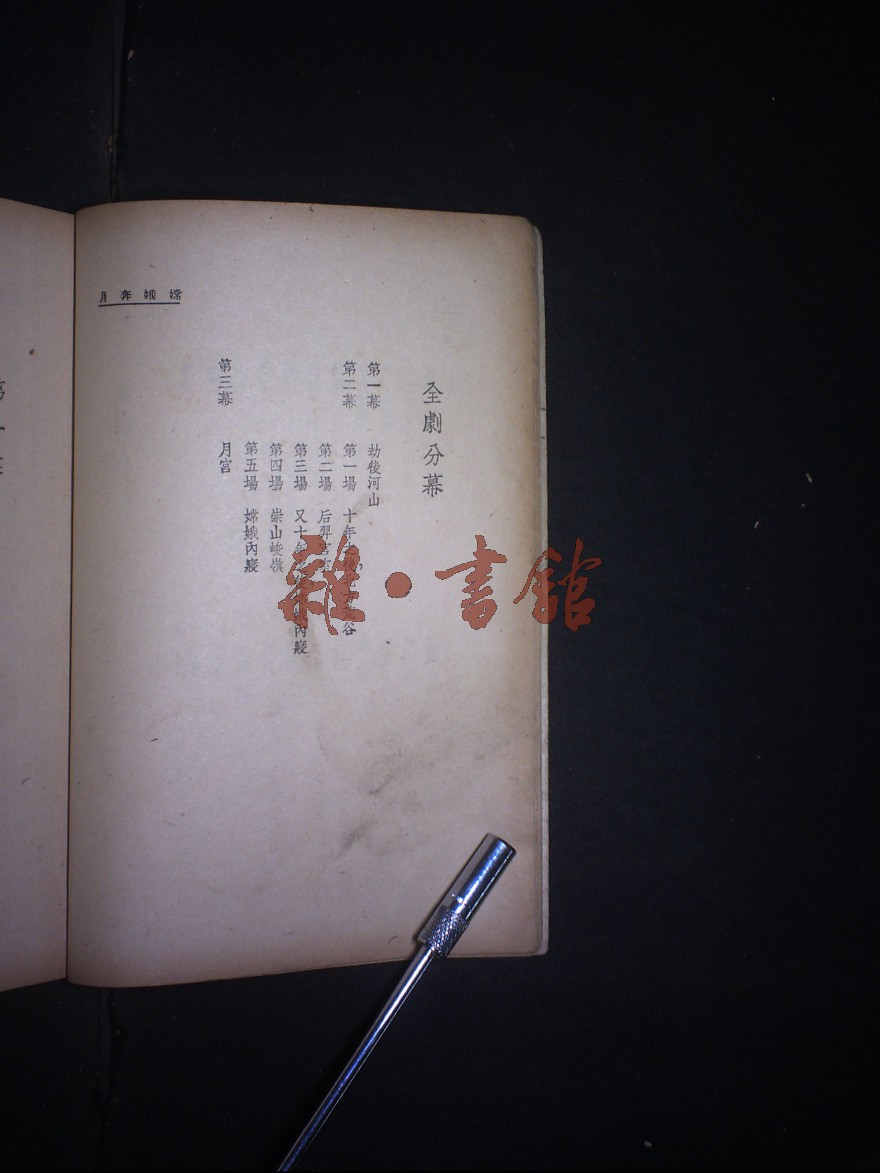 嫦娥奔月
全劇分幕
第一幕 劫後河山
第二幕 第一場 十年谷
第二場 后羿宮
第三場 又十年內寢
第四場 崇山峻嶺
第五場 嫦娥內寢
第三幕 月宮
第一幕
雜·書館